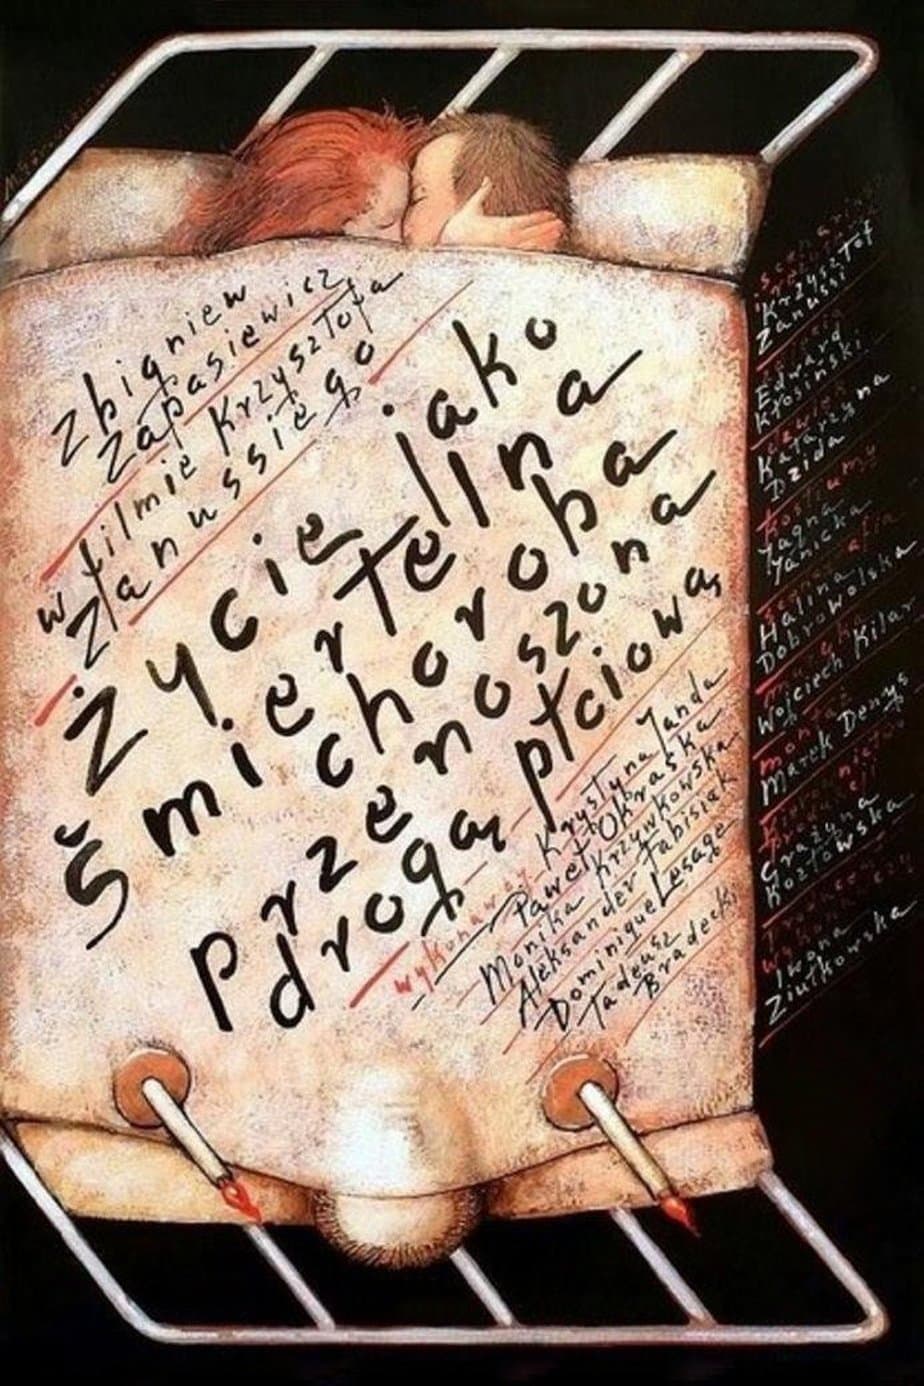 Zbigniew
Zapasiewicz
w filmie Krzysztofa
Zanussiego
Życie jako
śmiertelna
choroba
przenoszona
drogą płciową
wykonawcy Krystyna Janda
Paweł Okraska
Monika Krzywkowska
Aleksander Fabisiak
Dominique Lesage
Tadeusz
Bradecki
scenariusz
Krzysztof
Zanussi
zdjęcia
Edward
Kłosiński
dźwięk
Katarzyna
Dzida
kostiumy
Jagna
Janicka
Halina
Dobrowolska
muzyka
Wojciech Kilar
montaż
Marek Denys
kierownictwo
produkcji
Grażyna
Kozłowska
producent
wykonawczy
Iwona
Ziułkowska